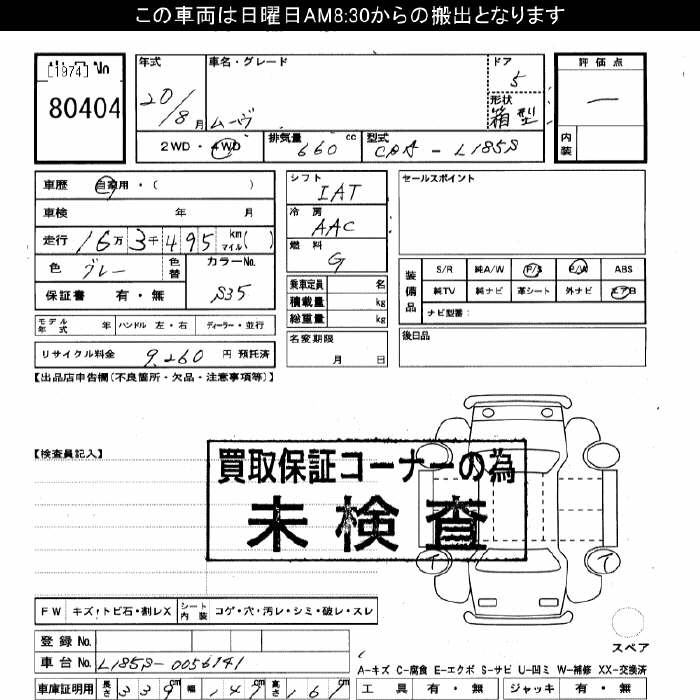 この車両は日曜日AM8:30からの搬出となります
[1974] No
80404
年式 車名・グレード ドア 評価点
20/8月 ムーヴ 5 形状 箱型 一
2WD・4WD 排気量 660 cc 型式 CBA-L185S 内装
車歴 自家用・( )
車検 年 月
走行 16万3千495 km マイル( )
色 グレー 色替 カラーNo. S35
保証書 有・無
モデル年式 年 ハンドル 左・右 ディーラー・並行
リサイクル料金 9,260 円 預託済
シフト IAT
冷房 AAC
燃料 G
乗車定員 名
積載量 kg
総重量 kg
名変期限
月 日
セールスポイント
装備品 S/R 純A/W P/S P/W ABS
純TV 純ナビ 革シート 外ナビ エアB
ナビ型番:
後日品
【出品店申告欄(不良箇所・欠品・注意事項等)】
【検査員記入】
買取保証コーナーの為
未検査
イ イ
FW キズ・トビ石・割レX シート内装 コゲ・穴・汚レ・シミ・破レ・スレ
スペア
登録No.
車台No. L185S-0056141
A-キズ C-腐食 E-エクボ S-サビ U-凹ミ W-補修 XX-交換済
車庫証明用 長さ 339cm 幅 147cm 高さ 167cm
工具 有・無 ジャッキ 有・無